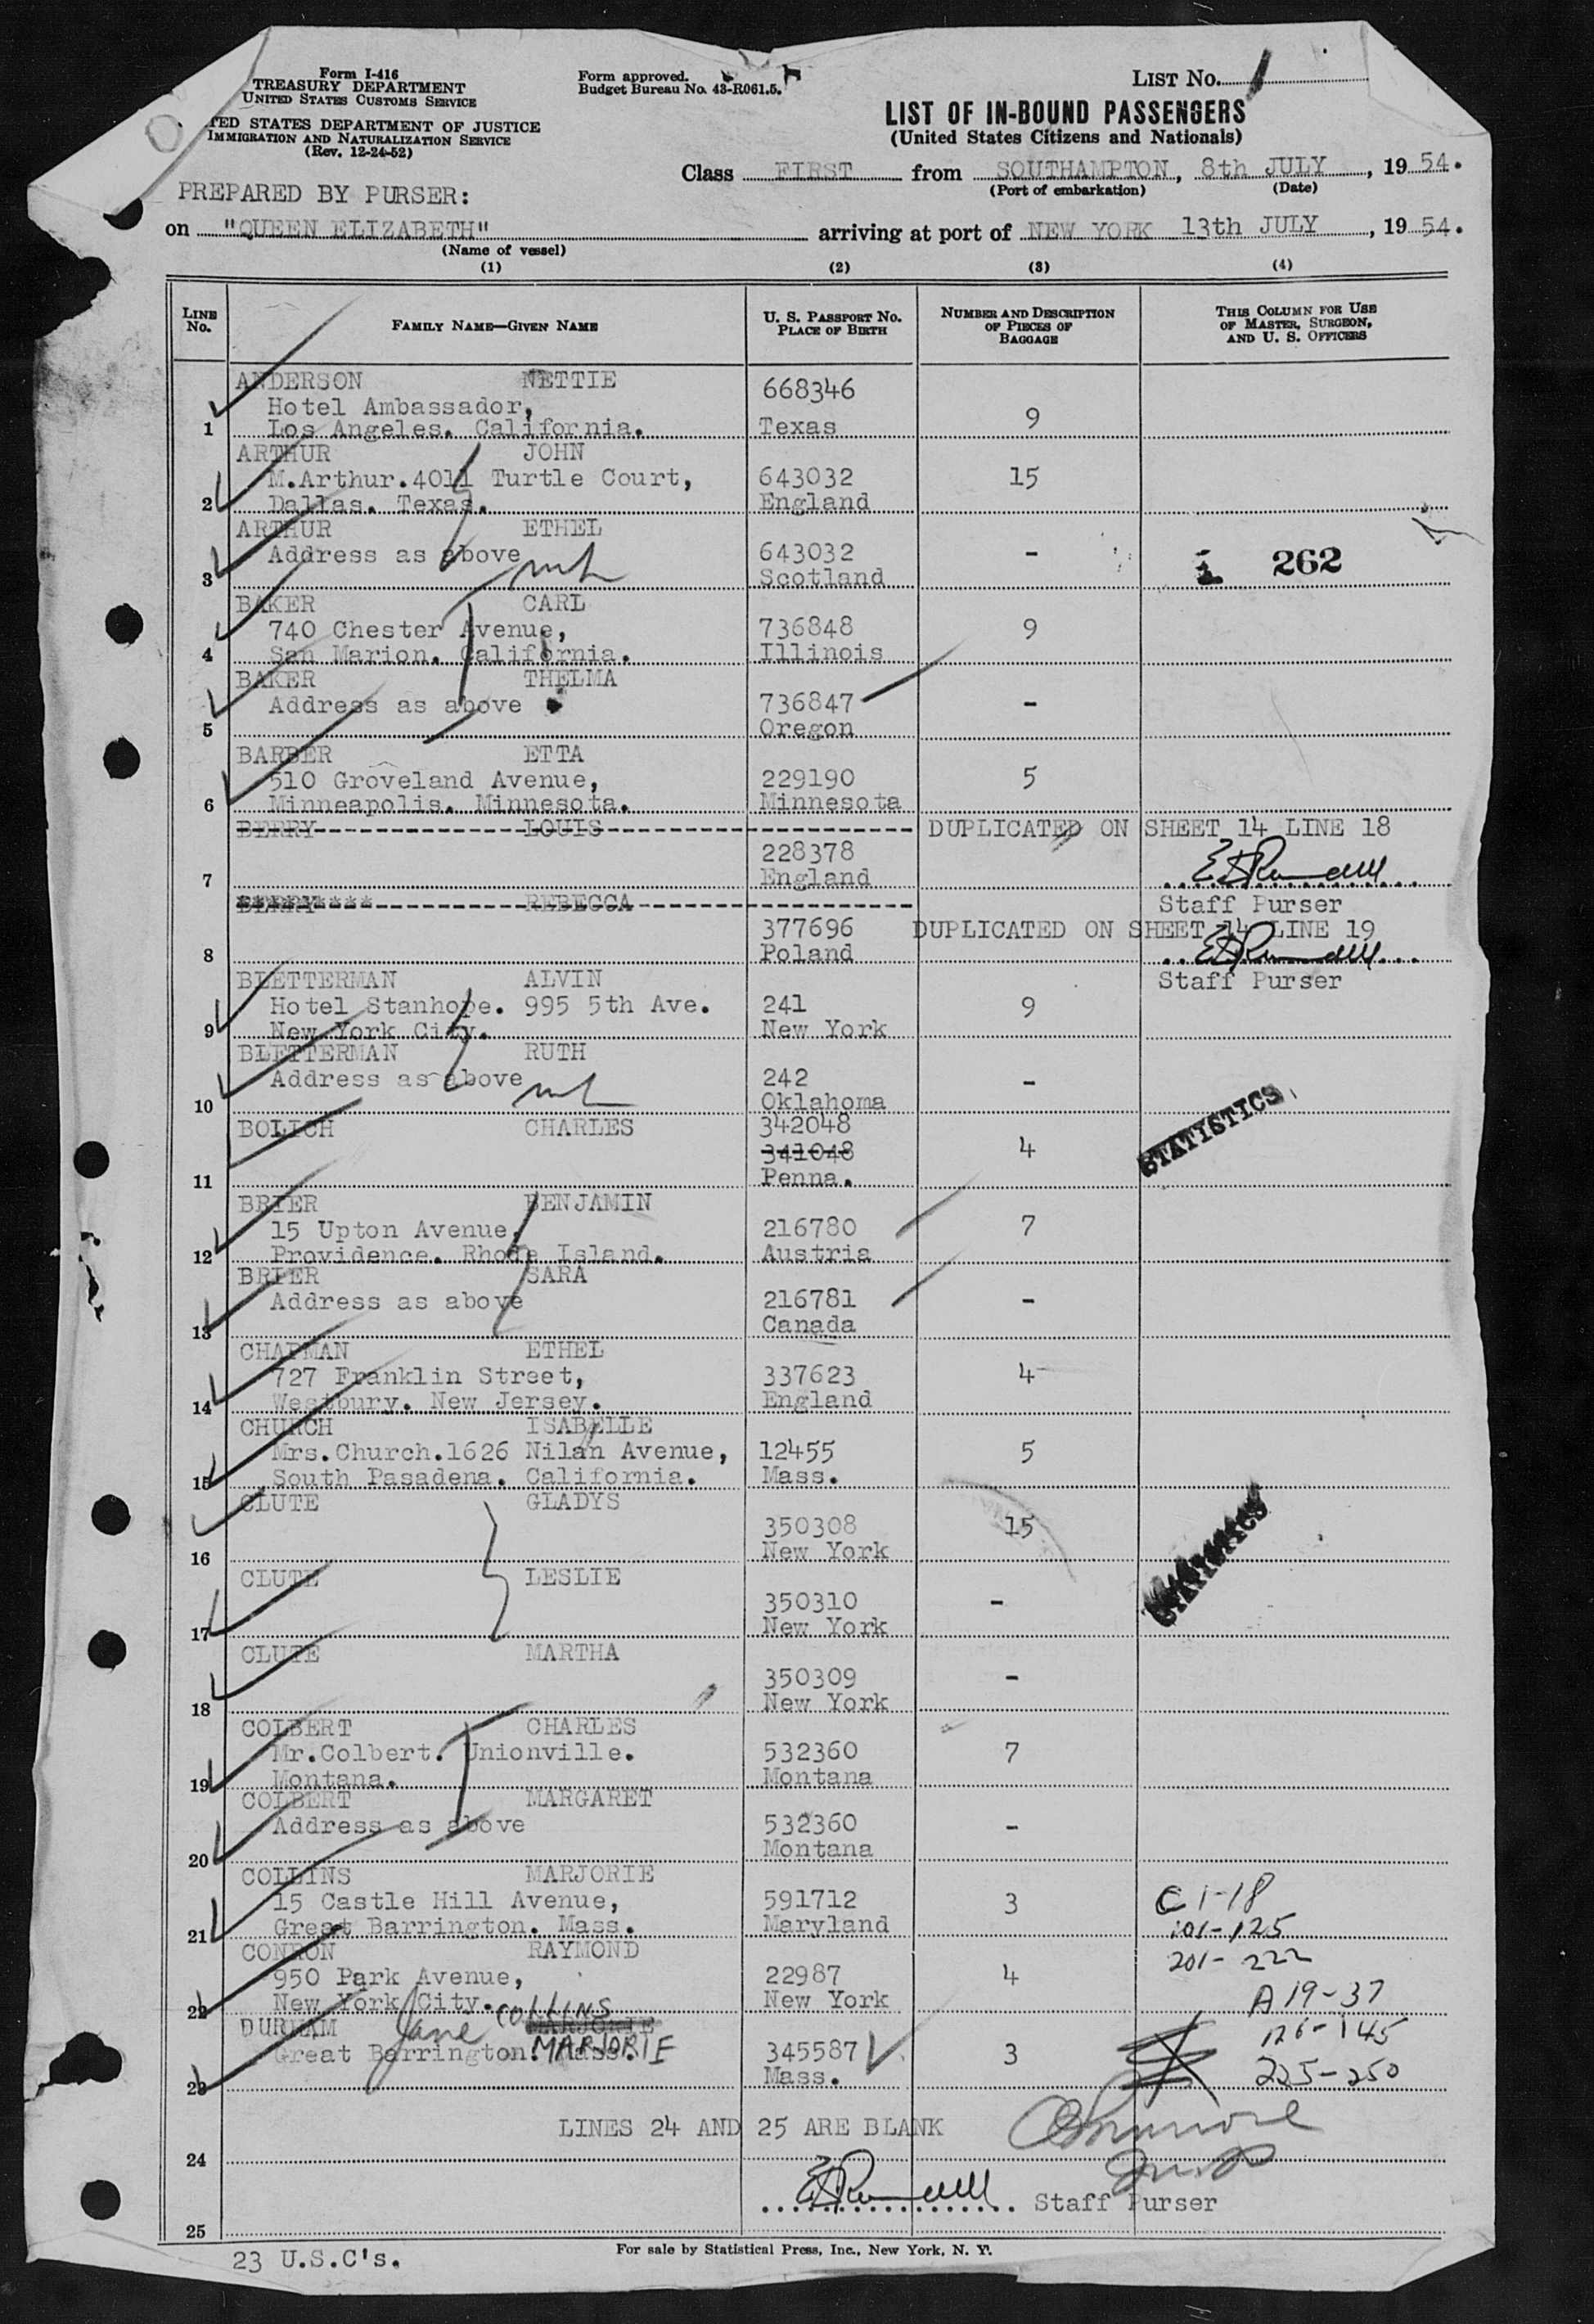 Form I-416
TREASURY DEPARTMENT
UNITED STATES CUSTOMS SERVICE
TED STATES DEPARTMENT OF JUSTICE
IMMIGRATION AND NATURALIZATION SERVICE
(Rev. 12-24-52)
Form approved.
Budget Bureau No. 43-R061.5.
LIST No.
LIST OF IN-BOUND PASSENGERS
(United States Citizens and Nationals)
Class FIRST from SOUTHAMPTON, 8th JULY, 1954.
(Port of embarkation) (Date)
PREPARED BY PURSER:
on "QUEEN ELIZABETH" arriving at port of NEW YORK 13th JULY, 1954.
(Name of vessel)
(1) (2) (3) (4)
LINE No. FAMILY NAME—GIVEN NAME U. S. PASSPORT No. PLACE OF BIRTH NUMBER AND DESCRIPTION OF PIECES OF BAGGAGE THIS COLUMN FOR USE OF MASTER, SURGEON, AND U. S. OFFICERS
ANDERSON NETTIE 668346
Hotel Ambassador, 9
1 Los Angeles. California. Texas
ARTHUR JOHN
M.Arthur.4011 Turtle Court, 643032 15
2 Dallas. Texas. England
ARTHUR ETHEL
Address as above 643032 - 262
3 Scotland
BAKER CARL
740 Chester Avenue, 736848 9
4 San Marion. California. Illinois
BAKER THELMA
Address as above 736847 -
5 Oregon
BARBER ETTA
510 Groveland Avenue, 229190 5
6 Minneapolis. Minnesota. Minnesota
BERRY LOUIS DUPLICATED ON SHEET 14 LINE 18
228378
7 England
BERRY REBECCA Staff Purser
377696 DUPLICATED ON SHEET 14 LINE 19
8 Poland
BLETTERMAN ALVIN Staff Purser
Hotel Stanhope. 995 5th Ave. 241 9
9 New York City. New York
BLETTERMAN RUTH
Address as above 242 -
10 Oklahoma
BOLICH CHARLES 342048
341048 4
11 Penna.
STATISTICS
BRIER BENJAMIN
15 Upton Avenue, 216780 7
12 Providence. Rhode Island. Austria
BRIER SARA
Address as above 216781 -
13 Canada
CHAPMAN ETHEL
727 Franklin Street, 337623 4
14 Westbury. New Jersey. England
CHURCH ISABELLE
Mrs.Church.1626 Nilan Avenue, 12455 5
15 South Pasadena. California. Mass.
CLUTE GLADYS
350308 15
16 New York
STATISTICS
CLUTE LESLIE
350310 -
17 New York
CLUTE MARTHA
350309 -
18 New York
COLBERT CHARLES
Mr.Colbert. Unionville. 532360 7
19 Montana. Montana
COLBERT MARGARET
Address as above 532360 -
20 Montana
COLLINS MARJORIE
15 Castle Hill Avenue, 591712 3 C 1-18
21 Great Barrington. Mass. Maryland 101-125
CONRON RAYMOND 201-222
950 Park Avenue, 22987 4
22 New York City. New York A 19-37
COLLINS
DURHAM Jane MARJORIE 126-145
Great Barrington. Mass. MARJORIE 345587 3 225-250
23 Mass.
LINES 24 AND 25 ARE BLANK
24
Staff Purser
25
23 U.S.C's.
For sale by Statistical Press, Inc., New York, N. Y.